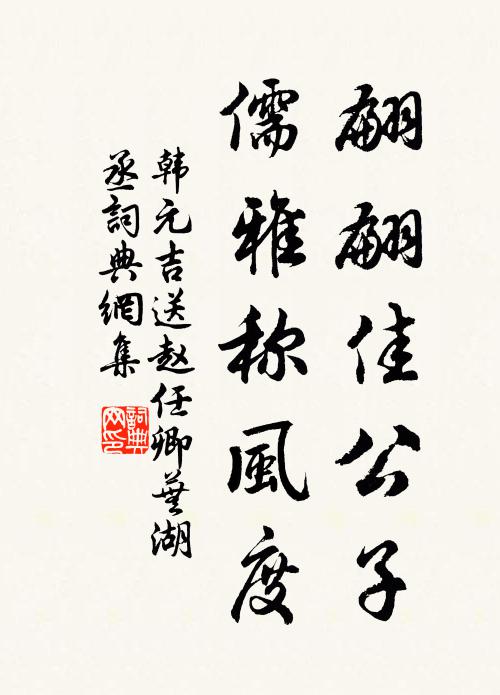 翩翩佳公子
儒雅称風度
韩元吉送赵任卿蕪湖
丞詞典網集
詞典
网印